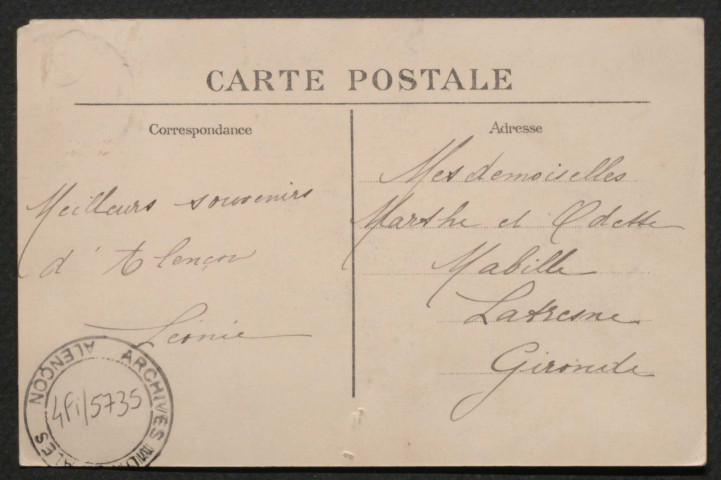 CARTE POSTALE
Correspondance
Meilleurs souvenirs
d'Alençon
Léonie
Adresse
Mesdemoiselles
Marthe et Odette
Mabille
Latresne
Gironde
ARCHIVES MUNICIPALES ALENÇON
4Fi/5735